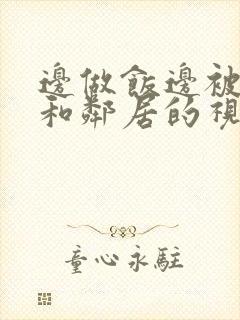 邊做飯邊被
和鄰居的視
童心永駐